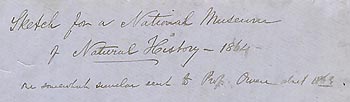 Sketch for a National Museum
of Natural History – 1864 –
one somewhat similar sent to Prof. Owen abot 1862